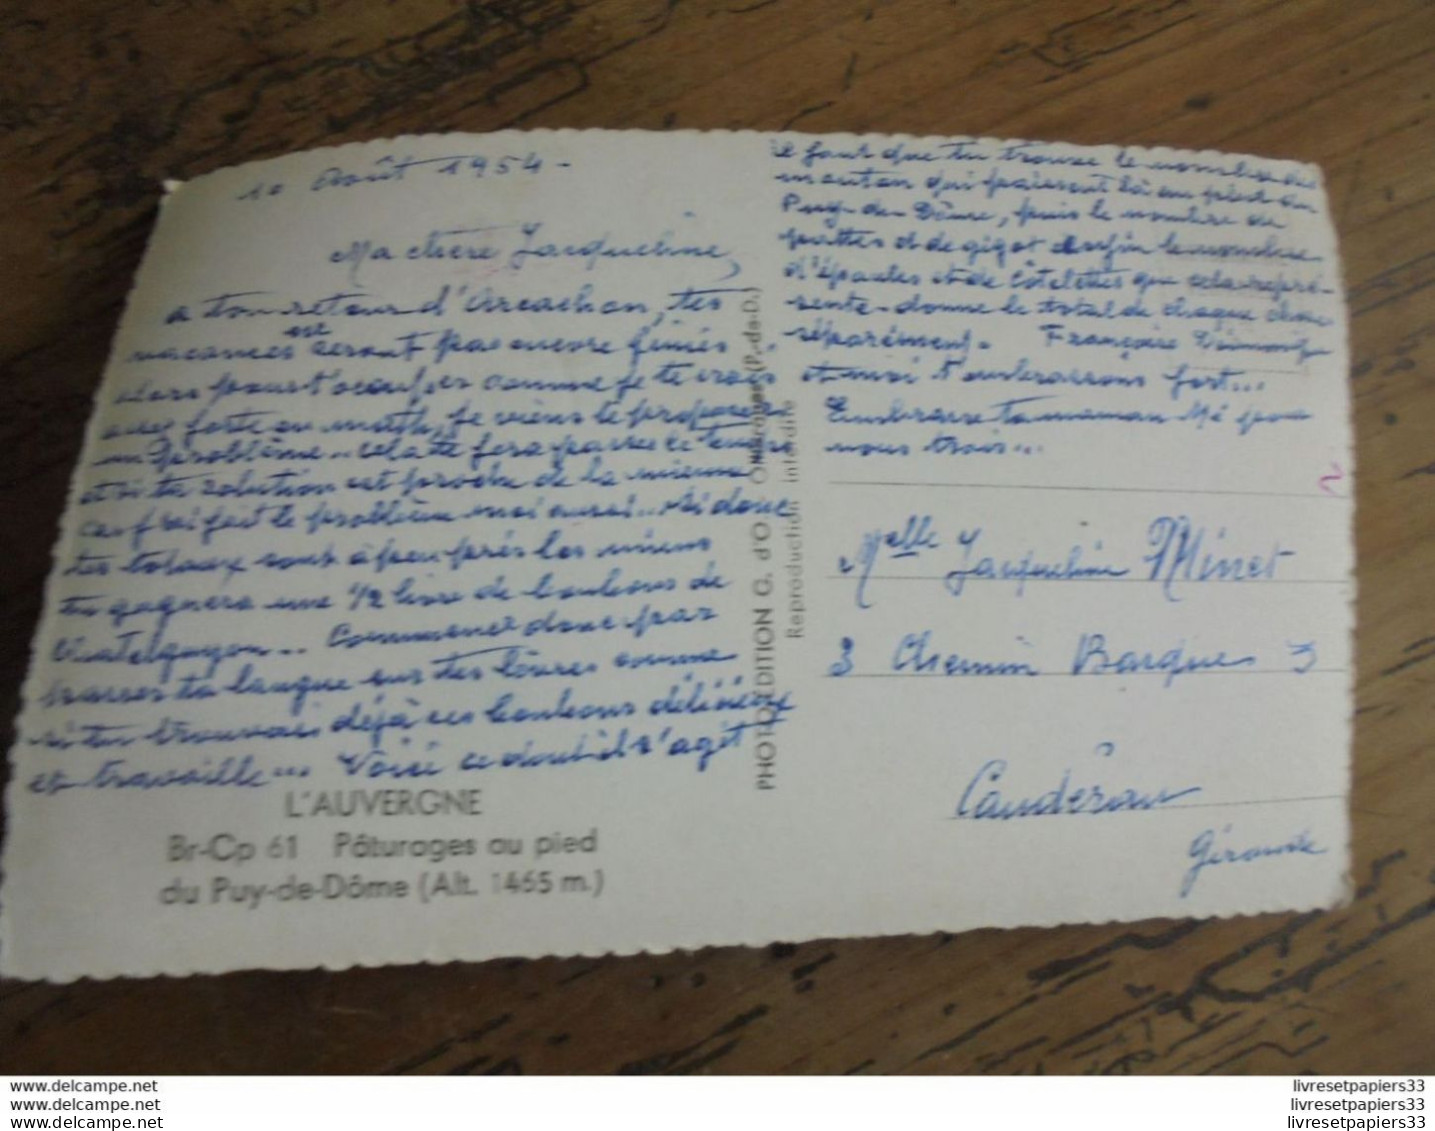 10 Août 1954 -
Ma chère Jacqueline,
a ton retour d'Arcachon, tes
vacances ne seront pas encore finies
alors pour t'occuper comme je te crois
assez forte en math, je viens te proposer
un problème... cela te fera passer le temps
et si ta solution est proche de la mienne
car j'ai fait le problème moi aussi... si donc
tes totaux sont à peu près les miens
tu gagnera une 1/2 livre de bonbons de
Chatelguyon... Commence donc par
passer ta langue sur tes lèvres comme
si tu trouvais déjà ces bonbons délicieux
et travaille... Voici ce dont il s'agit
L'AUVERGNE
Br-Cp 61 Pâturages au pied
du Puy-de-Dôme (Alt. 1465 m.)
PHOTO-EDITION G. d'O (P.-de-D.)
Reproduction interdite
il faut que tu trouve le nombre de
mouton qui paissent là au pied du
Puy-de-Dôme, puis le nombre de
pattes et de gigot enfin le nombre
d'épaules et de côtelettes que cela repré-
sente - donne le total de chaque chose
séparément. Françoise
et moi t'embrassons fort...
Embrasse ta maman Mé pour
nous trois...
Melle Jacqueline Minet
3 Chemin Barque 3
Caudéran
Gironde
www.delcampe.net
www.delcampe.net
www.delcampe.net
livresetpapiers33
livresetpapiers33
livresetpapiers33